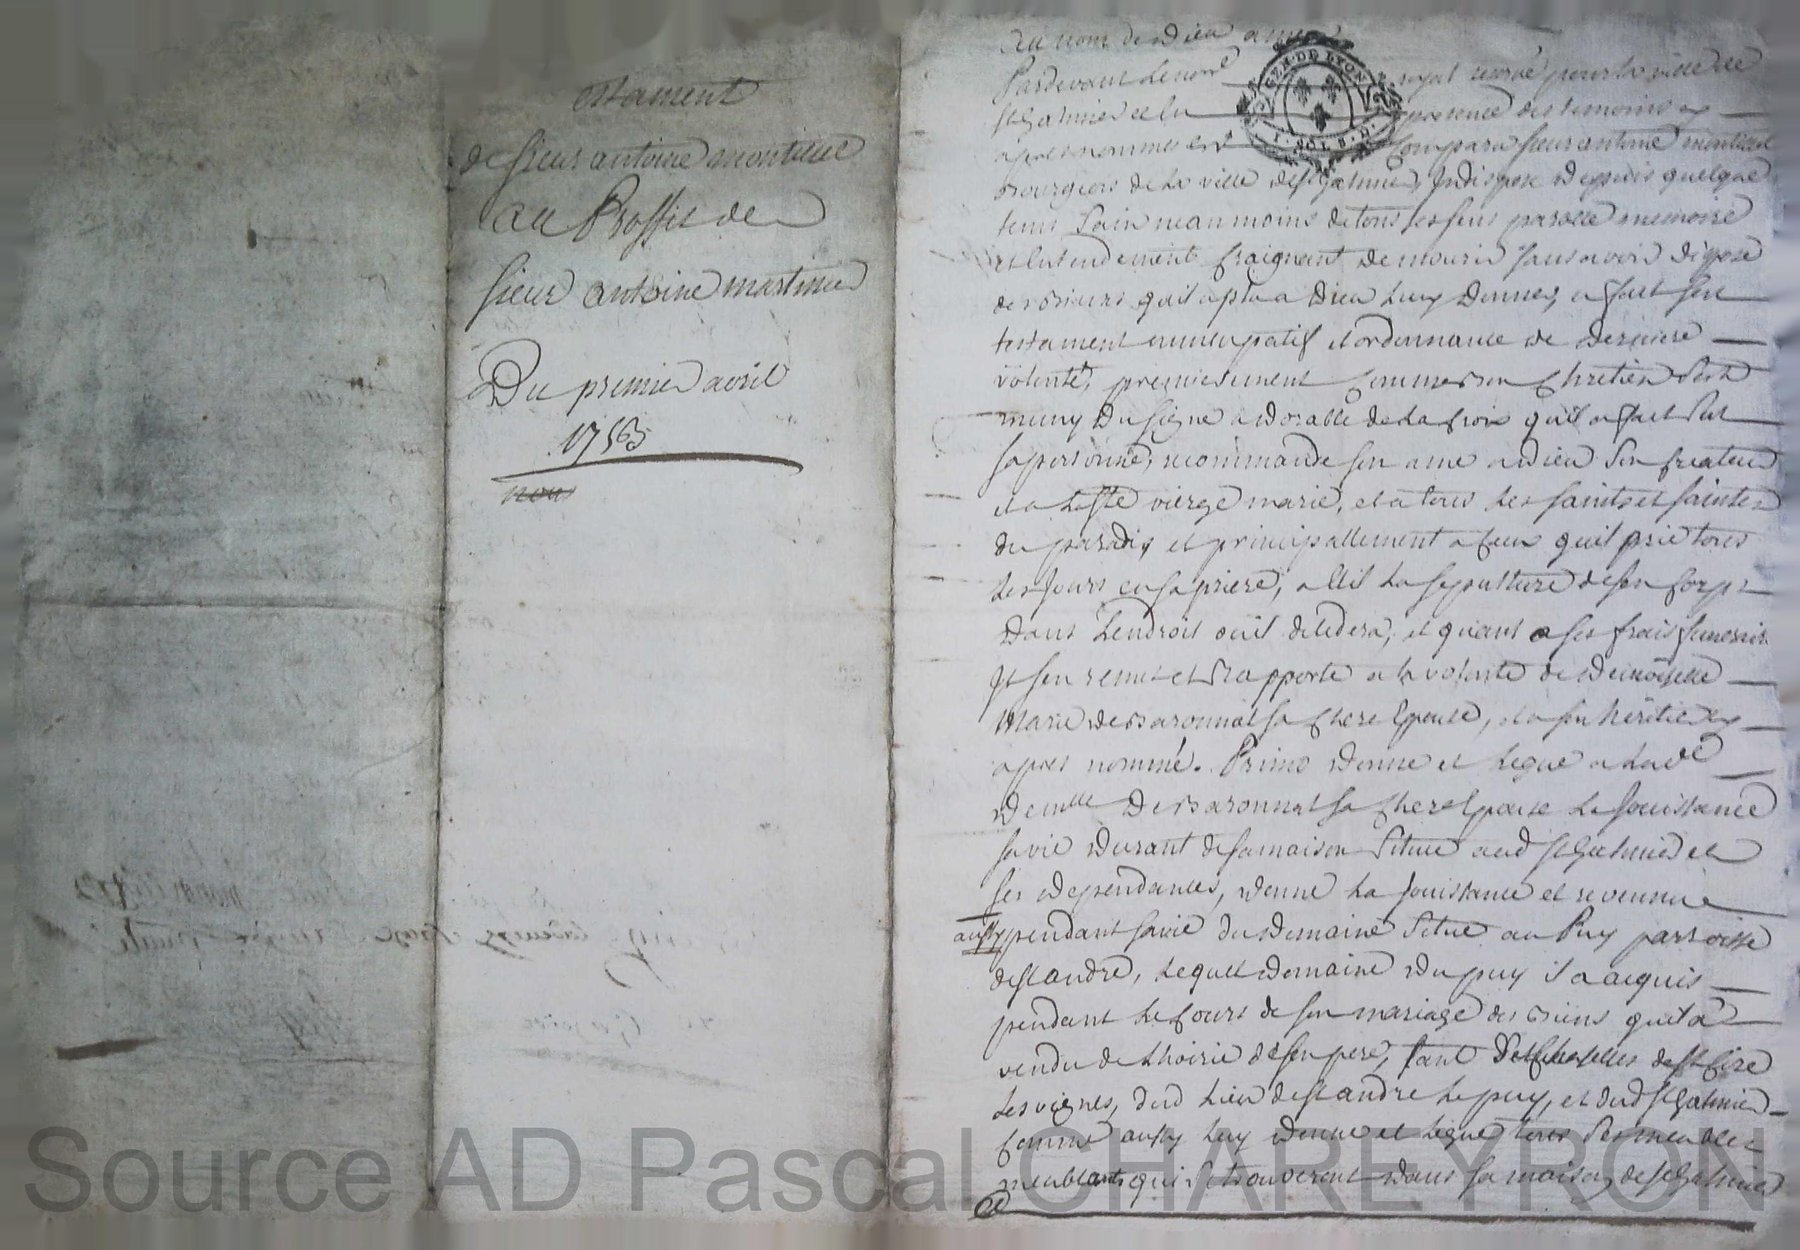 estament
de sieur antoine montellier
au Proffit de
sieur antoine martinier
Du premier avril
1756
nous
Au nom de Dieu amen
Pardevant le no.re royal reservé pour la ville de
St Galmier et en presence des temoins cy
apres nommes est Comparu sieur antoine
bourgeois de la ville de St Galmier, Indisposé depuis quelque
tems sain neanmoins de tous ses sens parolle memoire
et entendement craignant de mourir sans avoir disposé
des biens quil a plu a Dieu luy donner, a fait son
testament nuncupatif et ordonnance de derniere
volonté, premierement comme bon chretien sest
muny du signe adorable de la croix quil a fait sur
sa personne, recommande son ame a dieu son createur
et a la ste vierge marie, et a tous les saints et saintes
du paradis et principallement a ceux quil prie tous
les jours en sa priere, eslit la sepulture de son corps
dans lendroit ou il decedera, et quant a ses frais funeraires
Il sen remet et rapporte a la volonté de demoiselle
Marie de baronnat sa chere Epouse, et a son heritier cy
apres nommé. Primo donne et legue a lad.e
d.elle De baronnat sa chere Epouse la jouissance
sa vie durant de sa maison situee aud St Galmier et
ses dependances, donne la jouissance et revenu
aussy pendant sa vie du domaine situé au Puy parroisse
de St andré, lequel domaine du puy il a acquis
pendant le cours de son mariage des biens quil a
vendu de lhoirie de son pere, tant de St Cire
les vignes, dud lieu de St andré le puy, et dud St Galmier
comme aussy luy donne et legue tous ses meubles
meublants qui se trouveront dans sa maison de St Galmier
et
Source AD Pascal CHAREYRON